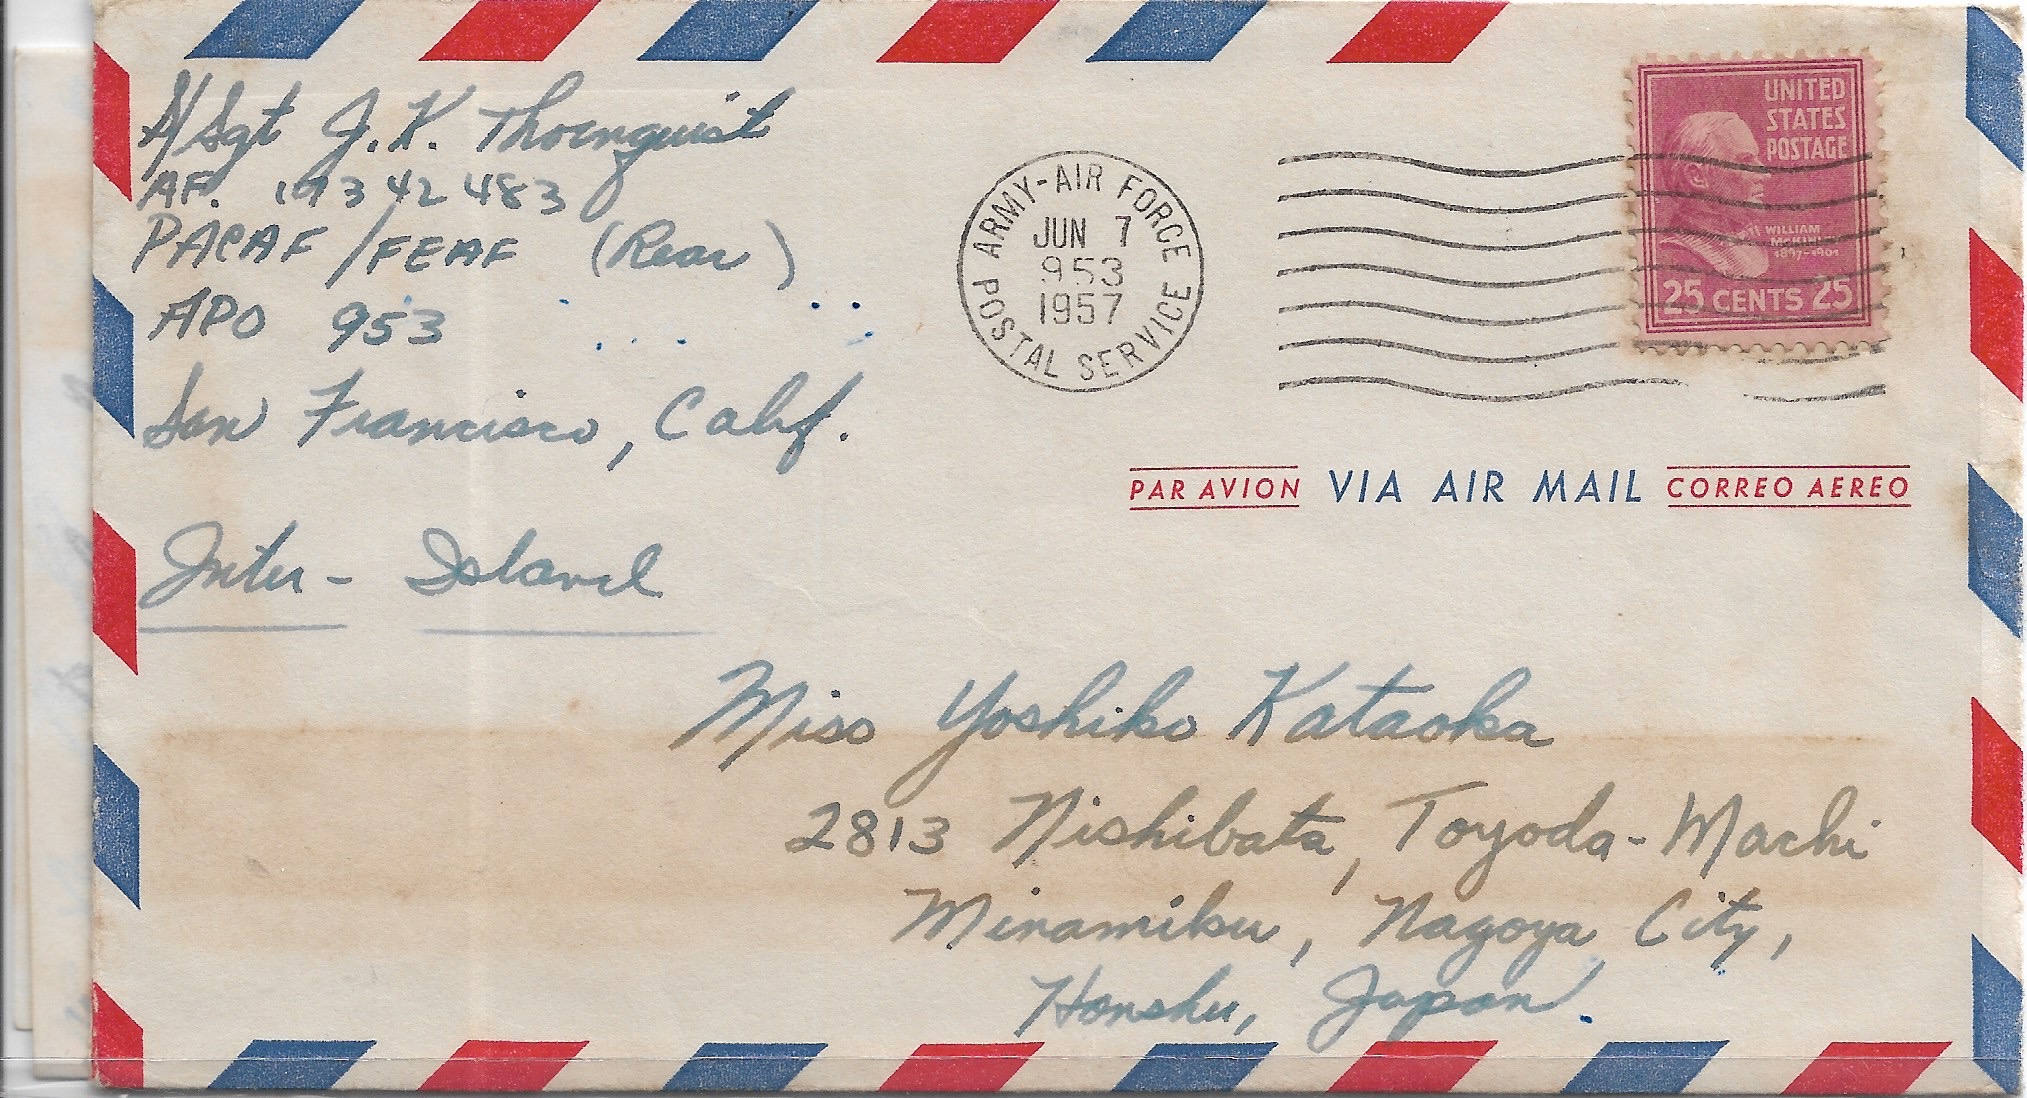 A/Sgt J.K. Thornquist
AF. 19342483
PACAF/FEAF (Rear)
APO 953
San Francisco, Calif.
ARMY-AIR FORCE
POSTAL SERVICE
JUN 7
953
1957
UNITED
STATES
POSTAGE
WILLIAM
McKINLEY
1897-1901
25 CENTS 25
PAR AVION VIA AIR MAIL CORREO AEREO
Inter-Island
Miss Yoshiko Kataoka
2813 Nishibata, Toyoda-Machi
Minamiku, Nagoya City,
Honshu, Japan.